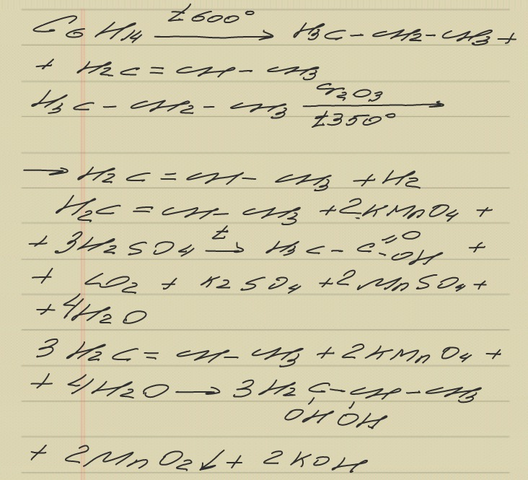 C6 H14 —t600°→ H3C – CH2 – CH3 +
+ H2C = CH – CH3
H3C – CH2 – CH3 —Cr2O3 t350°→
→ H2C = CH – CH3 + H2
H2C = CH – CH3 + 2KMnO4 +
+ 3H2SO4 —t→ H3C – C=O –OH +
+ CO2 + K2SO4 + 2MnSO4 +
+ 4H2O
3 H2C = CH – CH3 + 2KMnO4 +
+ 4H2O → 3H2C – CH – CH3
OH OH
+ 2MnO2↓ + 2KOH